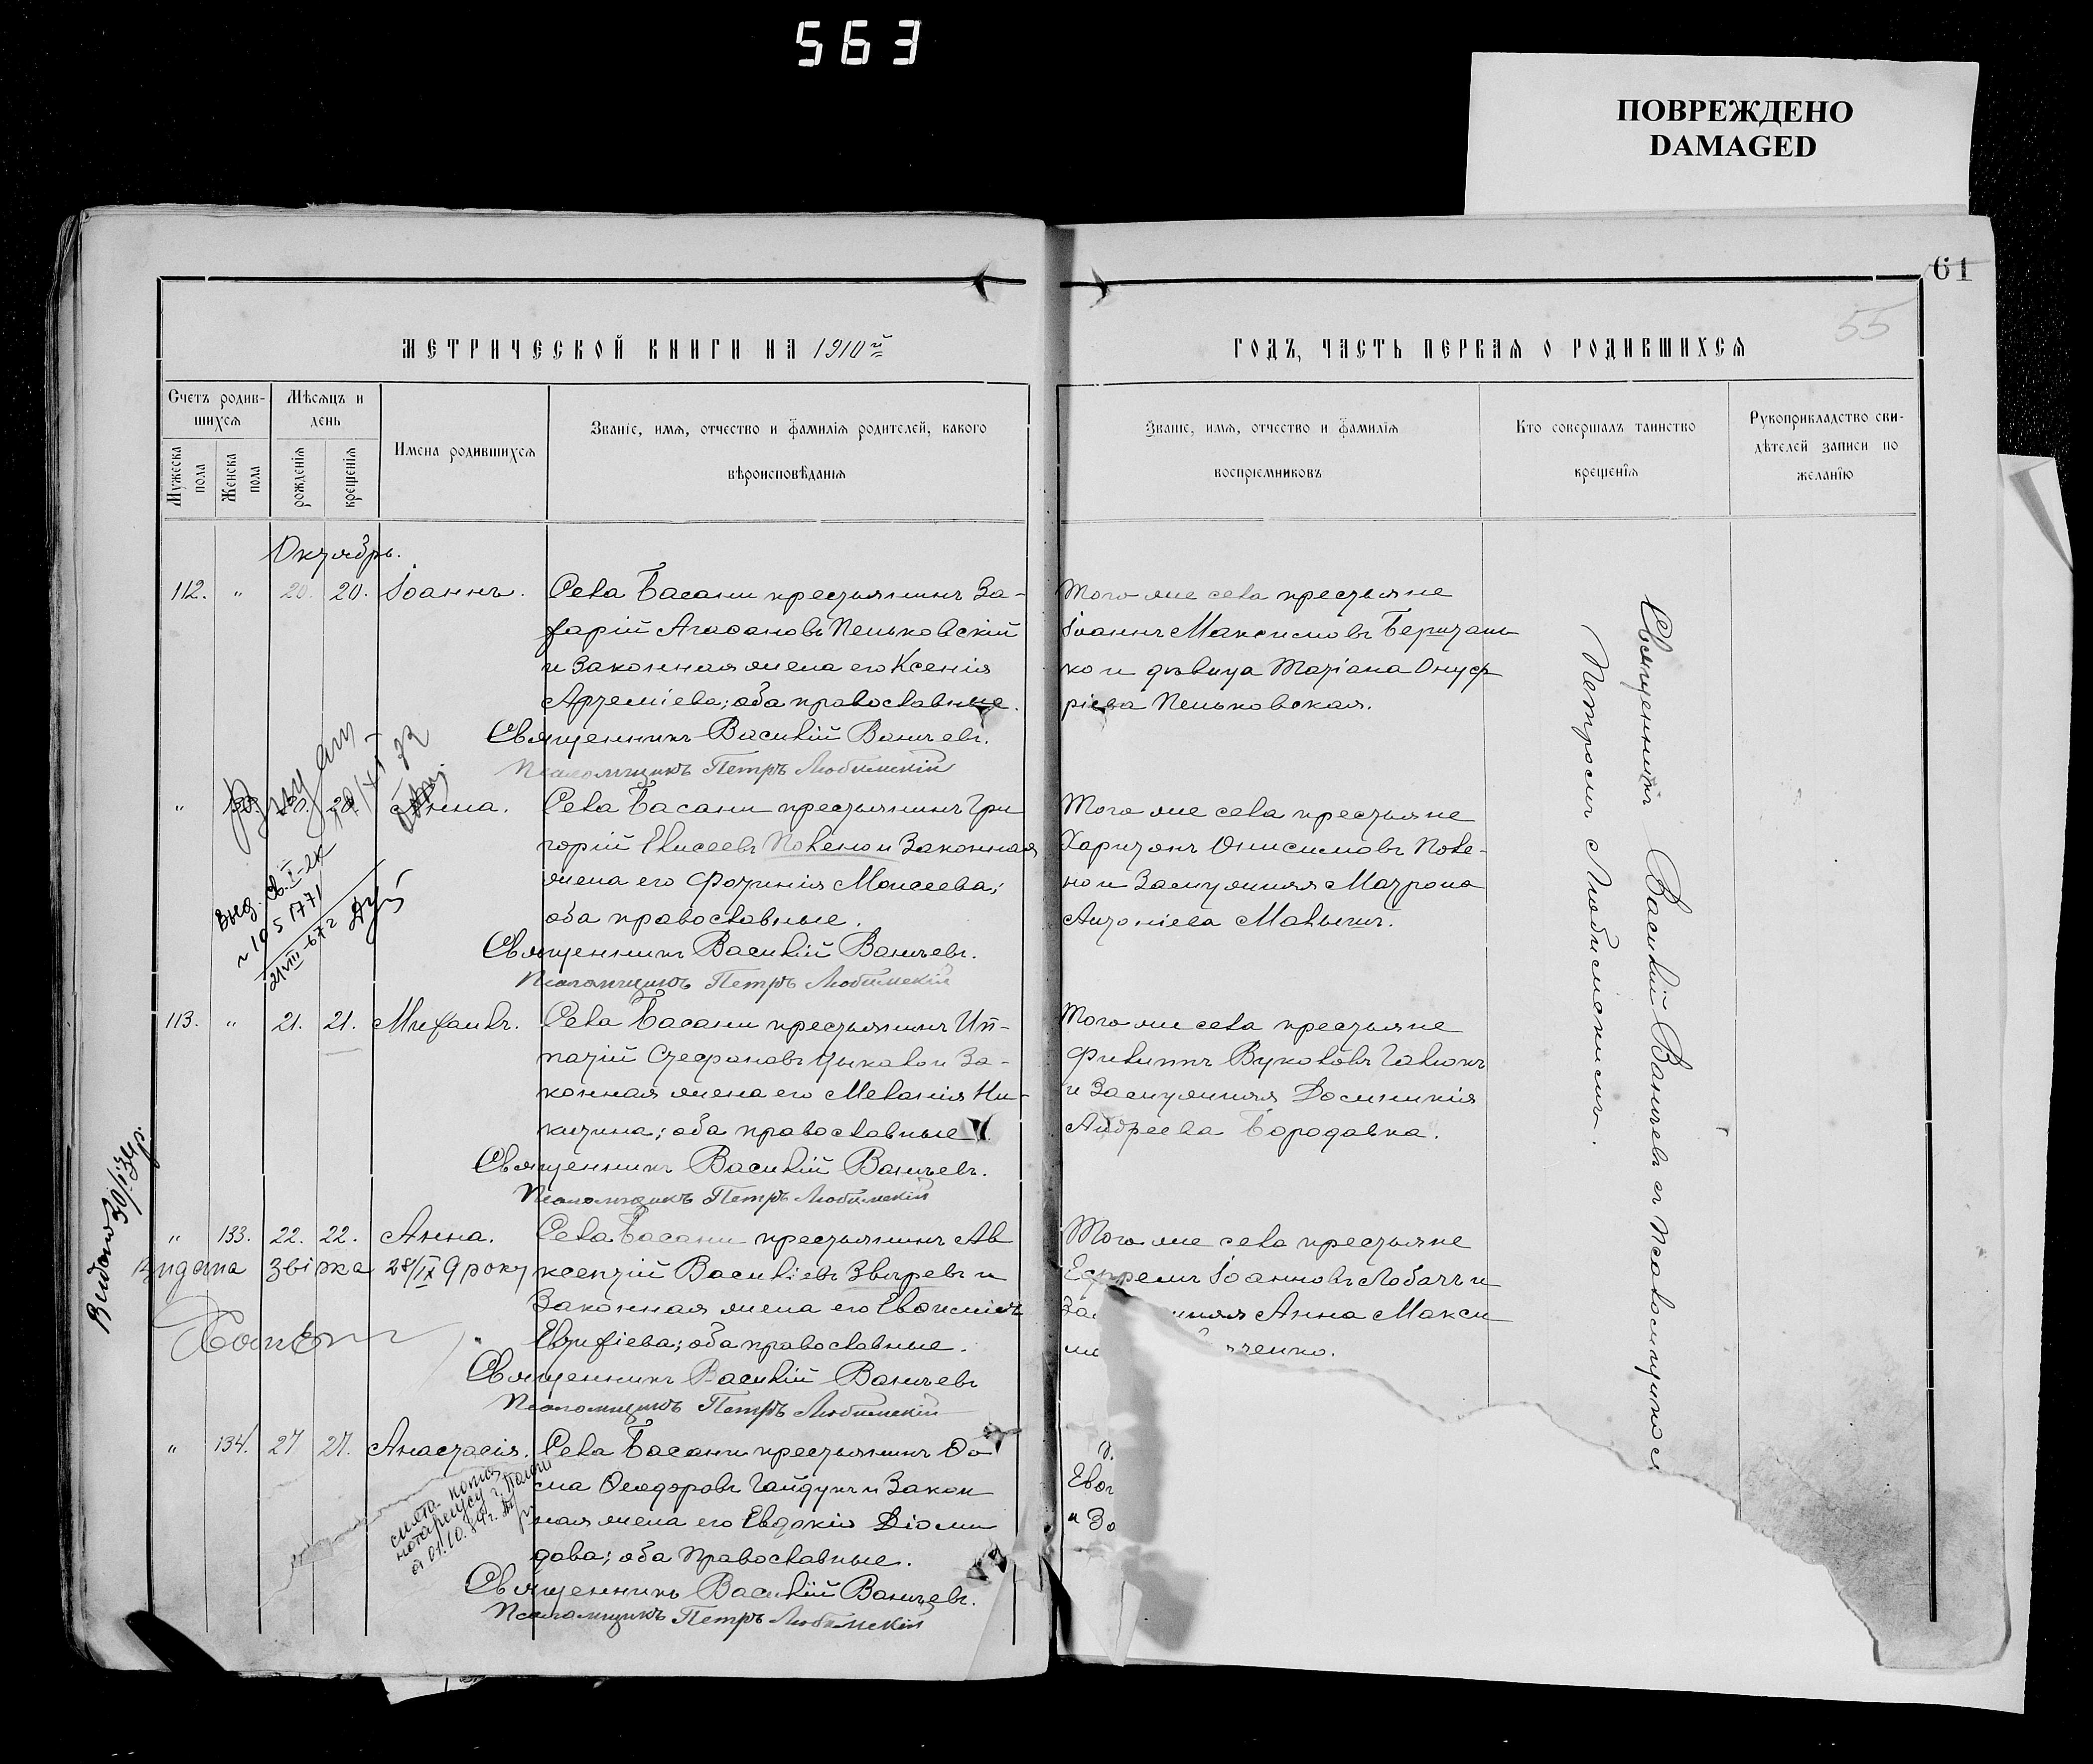 563
ПОВРЕЖДЕНО
DAMAGED
61
55
МЕТРИЧЕСКОЙ КНИГИ НА 1910й
ГОДЪ, ЧАСТЬ ПЕРВАЯ О РОДИВШИХСЯ
Счетъ родив-
шихся
Мужеска пола
Женска пола
Мѣсяцъ и
день
рожденія
крещенія
Имена родившихся
Званіе, имя, отчество и фамилія родителей, какого
вѣроисповѣданія
Званіе, имя, отчество и фамилія
воспріемниковъ
Кто совершалъ таинство
крещенія
Рукоприкладство сви-
дѣтелей записи по
желанію
Октябрь.
112. " 20. 20. Іоаннъ.
Села Басани крестьянинъ За-
харій Агафоновъ Пеньковскій
и законная жена его Ксенія
Артеміева; оба православные.
Священникъ Василій Ваничевъ.
Псаломщикъ Петръ Любимскій
Того же села крестьяне
Іоаннъ Максимовъ
ко и дѣвица Татіана Онуф
ріева Пеньковская.
" 20. Анна.
Села Басани крестьянинъ Гри
горій Елисеевъ Полено и законная
жена его Фотинія Моисеева;
оба православные.
Священникъ Василій Ваничевъ.
Псаломщикъ Петръ Любимскій
Того же села крестьяне
Харитонъ Онисимовъ Поле-
но и замужняя Матрона
Антоніева
Выд. Св. I-
21 VIII-67г
113. " 21. 21. Михаилъ.
Села Басани крестьянинъ Ип-
патій Стефановъ Цыкало и за-
конная жена его Меланія Ни-
китина; оба православные
Священникъ Василій Ваничевъ.
Псаломщикъ Петръ Любимскій
Того же села крестьяне
Филиппъ
и замужняя Домникія
Андреева Бородавка.
" 133. 22. 22. Анна.
Села Басани крестьянинъ Ав
ксентій Василіевъ Звѣревъ и
законная жена его Евфимія
Евтихіева; оба православные.
Священникъ Василій Ваничевъ
Псаломщикъ Петръ Любимскій
Того же села крестьяне
Ефремъ Іоанновъ Лобачъ и
за няя Анна Макси
ченко.
Видано 30/I 34р.
Видана звірка 28/IX 9 року
" 134. 27 27. Анастасія.
Села Басани крестьянинъ Ѳо
ма Ѳеодоровъ Гайдукъ и закон
ная жена его Евдокія Діоми
дова; оба православные.
Священникъ Василій Ваничевъ.
Псаломщикъ Петръ Любимскій
снята копия
нотариусу г. Пологи
от 01.10.84г.
и За
Священникъ Василій Ваничевъ съ псаломщикомъ
Петромъ Любимскимъ.